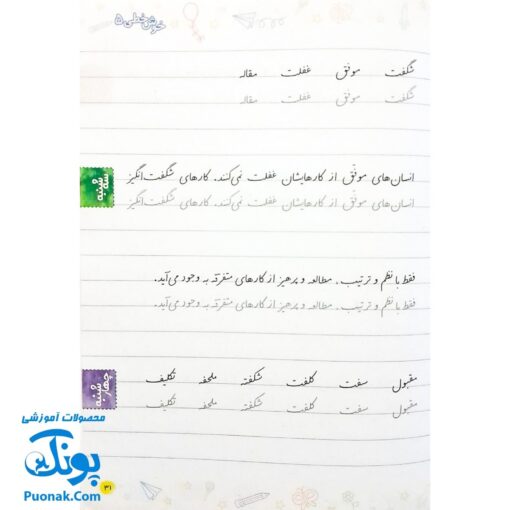 خوش‌خطی ۵
شگفت موفق غفلت مقاله
شگفت موفق غفلت مقاله
انسان‌های موفّق از کارهایشان غفلت نمی‌کنند. کارهای شگفت‌انگیز
انسان‌های موفّق از کارهایشان غفلت نمی‌کنند. کارهای شگفت‌انگیز
سه شنبه
فقط با نظم و ترتیب، مطالعه و پرهیز از کارهای متفرقه به وجود می‌آید.
فقط با نظم و ترتیب، مطالعه و پرهیز از کارهای متفرقه به وجود می‌آید.
مقبول سفت کلفت شکفته ملحفه تکلیف
مقبول سفت کلفت شکفته ملحفه تکلیف
چهارشنبه
محصولات آموزشی
پونک
Puonak.Com
۳۱